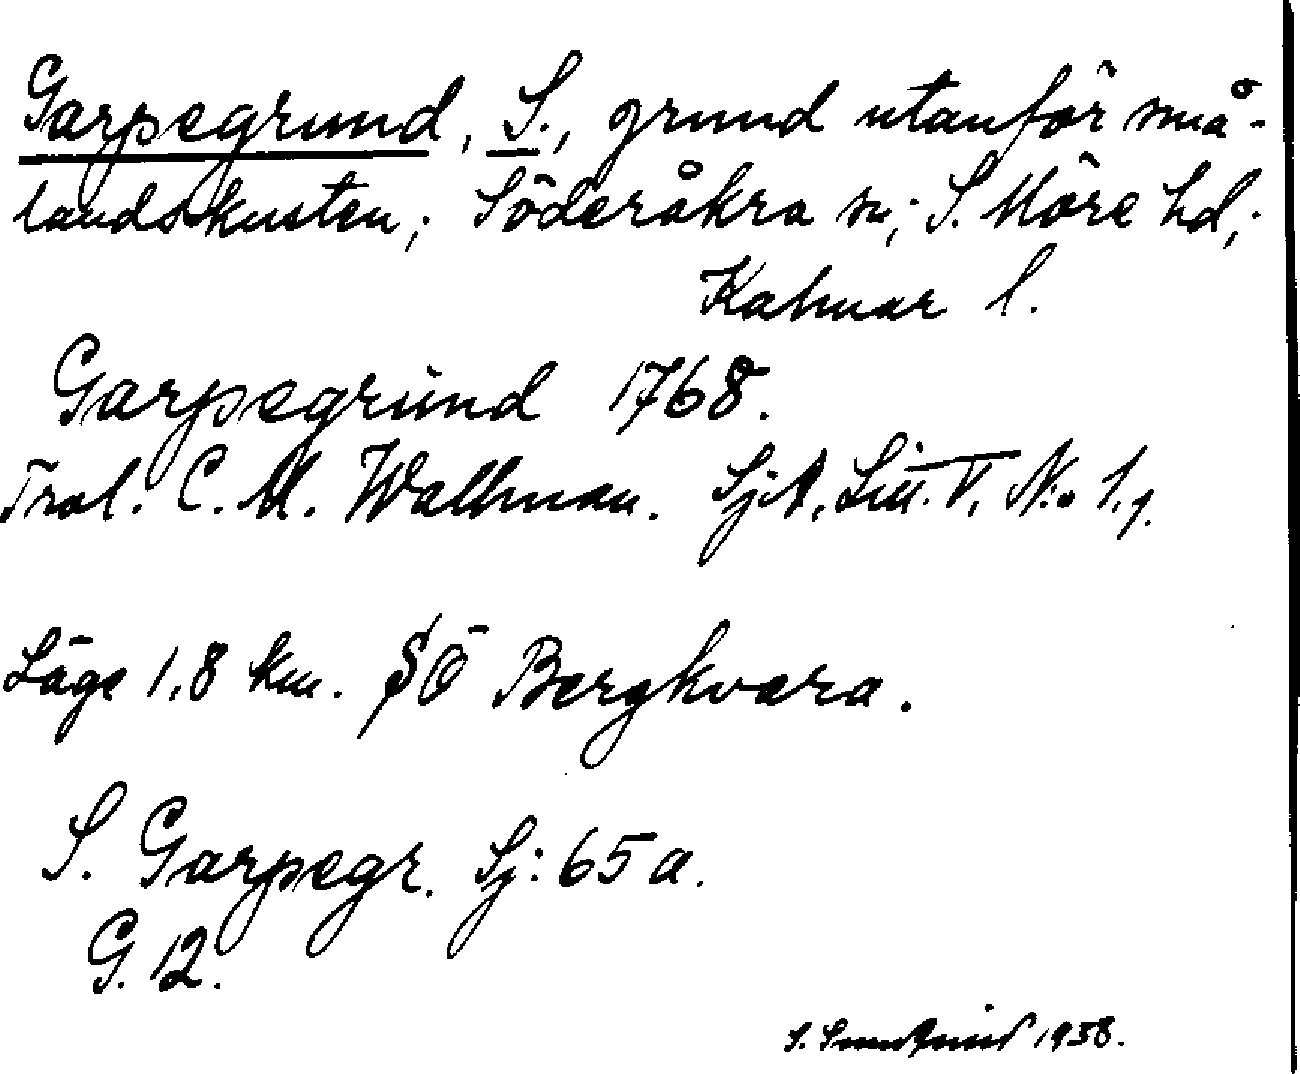 Garpegrund, S., grund utanför små-
landskusten; Söderåkra sn; S. Möre hd;
Kalmar l.
Garpegrund 1768.
Trol. C. M. Wallman. SjA, Litt. V. No 1.
Läge 1,8 km. SÖ Bergkvara.
S. Garpegr. Sj: 65 a.
G. 12.
S. 1938.